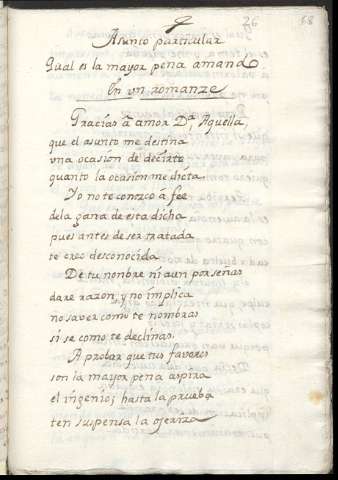 26 68
Asunto particular
Qual es la mayor pena amando
En un romanze
Gracias â amor Dª Aquella,
que el asunto me destina
vna ocasion de decirte
quanto la ocasion me dicta.
Yo no te conozco â fee
dela gana de esta dicha
pues antes de ser tratada
te creo desconocida
De tu nonbre ni aun por señas
dare razon, y no implica
no saver como te nombras
si se como te declinas.
A probar que tus favores
son la mayor pena aspira
el ingenio; hasta la prueba
ten suspensa la ojeriza